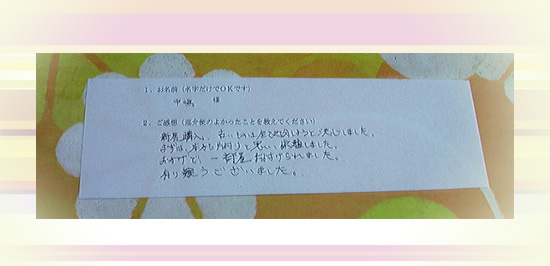 1. お名前（名字だけでOKです）
中嶋 様
2. ご感想（遺介使のよかったことを教えてください）
新居購入、古いものは全て処分しようと決心しました。
まずは、本から片付けと思い、依頼しました。
おかげで、一部屋片付けられました。
有り難うございました。